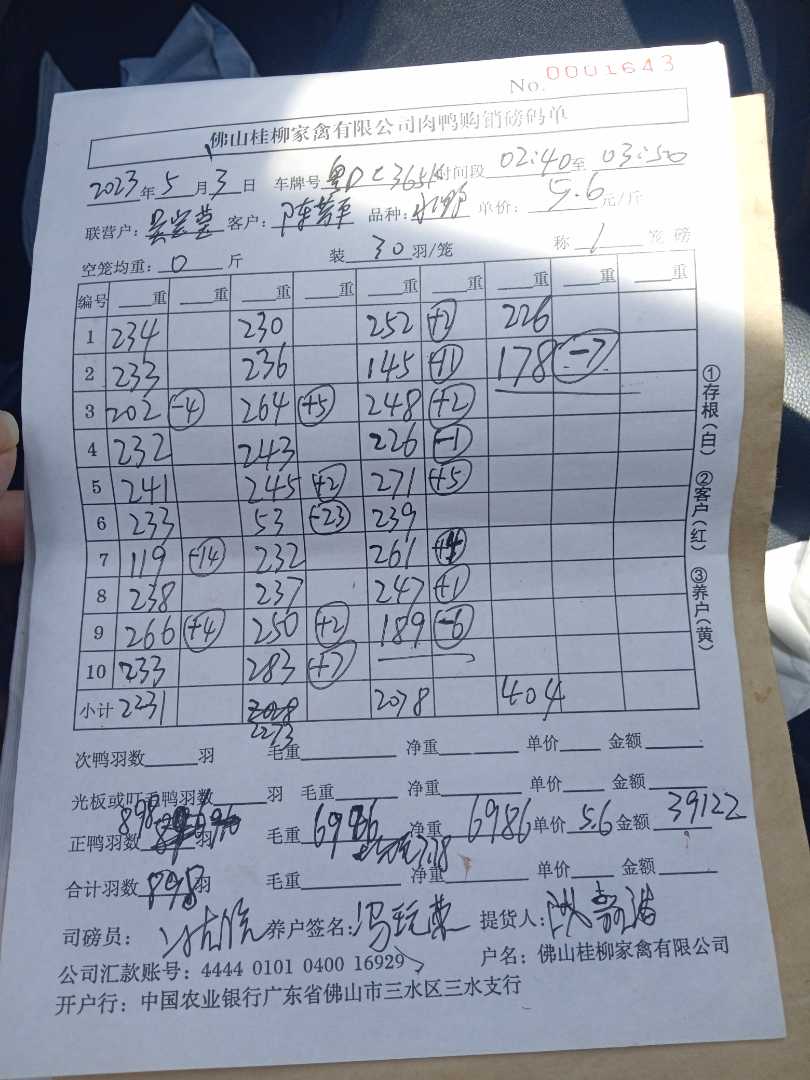 No. 0001643
佛山桂柳家禽有限公司肉鸭购销磅码单
2023年5月3日 车牌号 粤D 时间段 02:40至03:50
联营户: 客户: 陈 品种: 单价: 5.6元/斤
空笼均重: 0 斤 装 30 羽/笼 称 1 笼 磅
编号 重 重 重 重 重 重 重 重
1 234 230 252 +2 226
2 233 236 145 +1 178 -7
3 202 -4 264 +5 248 +2
4 232 243 226 -1
5 241 245 +2 271 +5
6 233 53 -23 239
7 119 -14 232 261
8 238 237 247 +1
9 266 +4 250 +2 189 -6
10 233 283 +7
小计 2231 2273 2078 404
次鸭羽数 羽 毛重 净重 单价 金额
光板或叮毛鸭羽数 羽 毛重 净重 单价 金额
正鸭羽数 898 羽 毛重 净重 6986 单价 5.6 金额 39122
合计羽数 898 羽 毛重 净重 单价 金额
司磅员: 养户签名: 提货人:
公司汇款账号: 4444 0101 0400 16929 户名: 佛山桂柳家禽有限公司
开户行: 中国农业银行广东省佛山市三水区三水支行
①存根(白) ②客户(红) ③养户(黄)